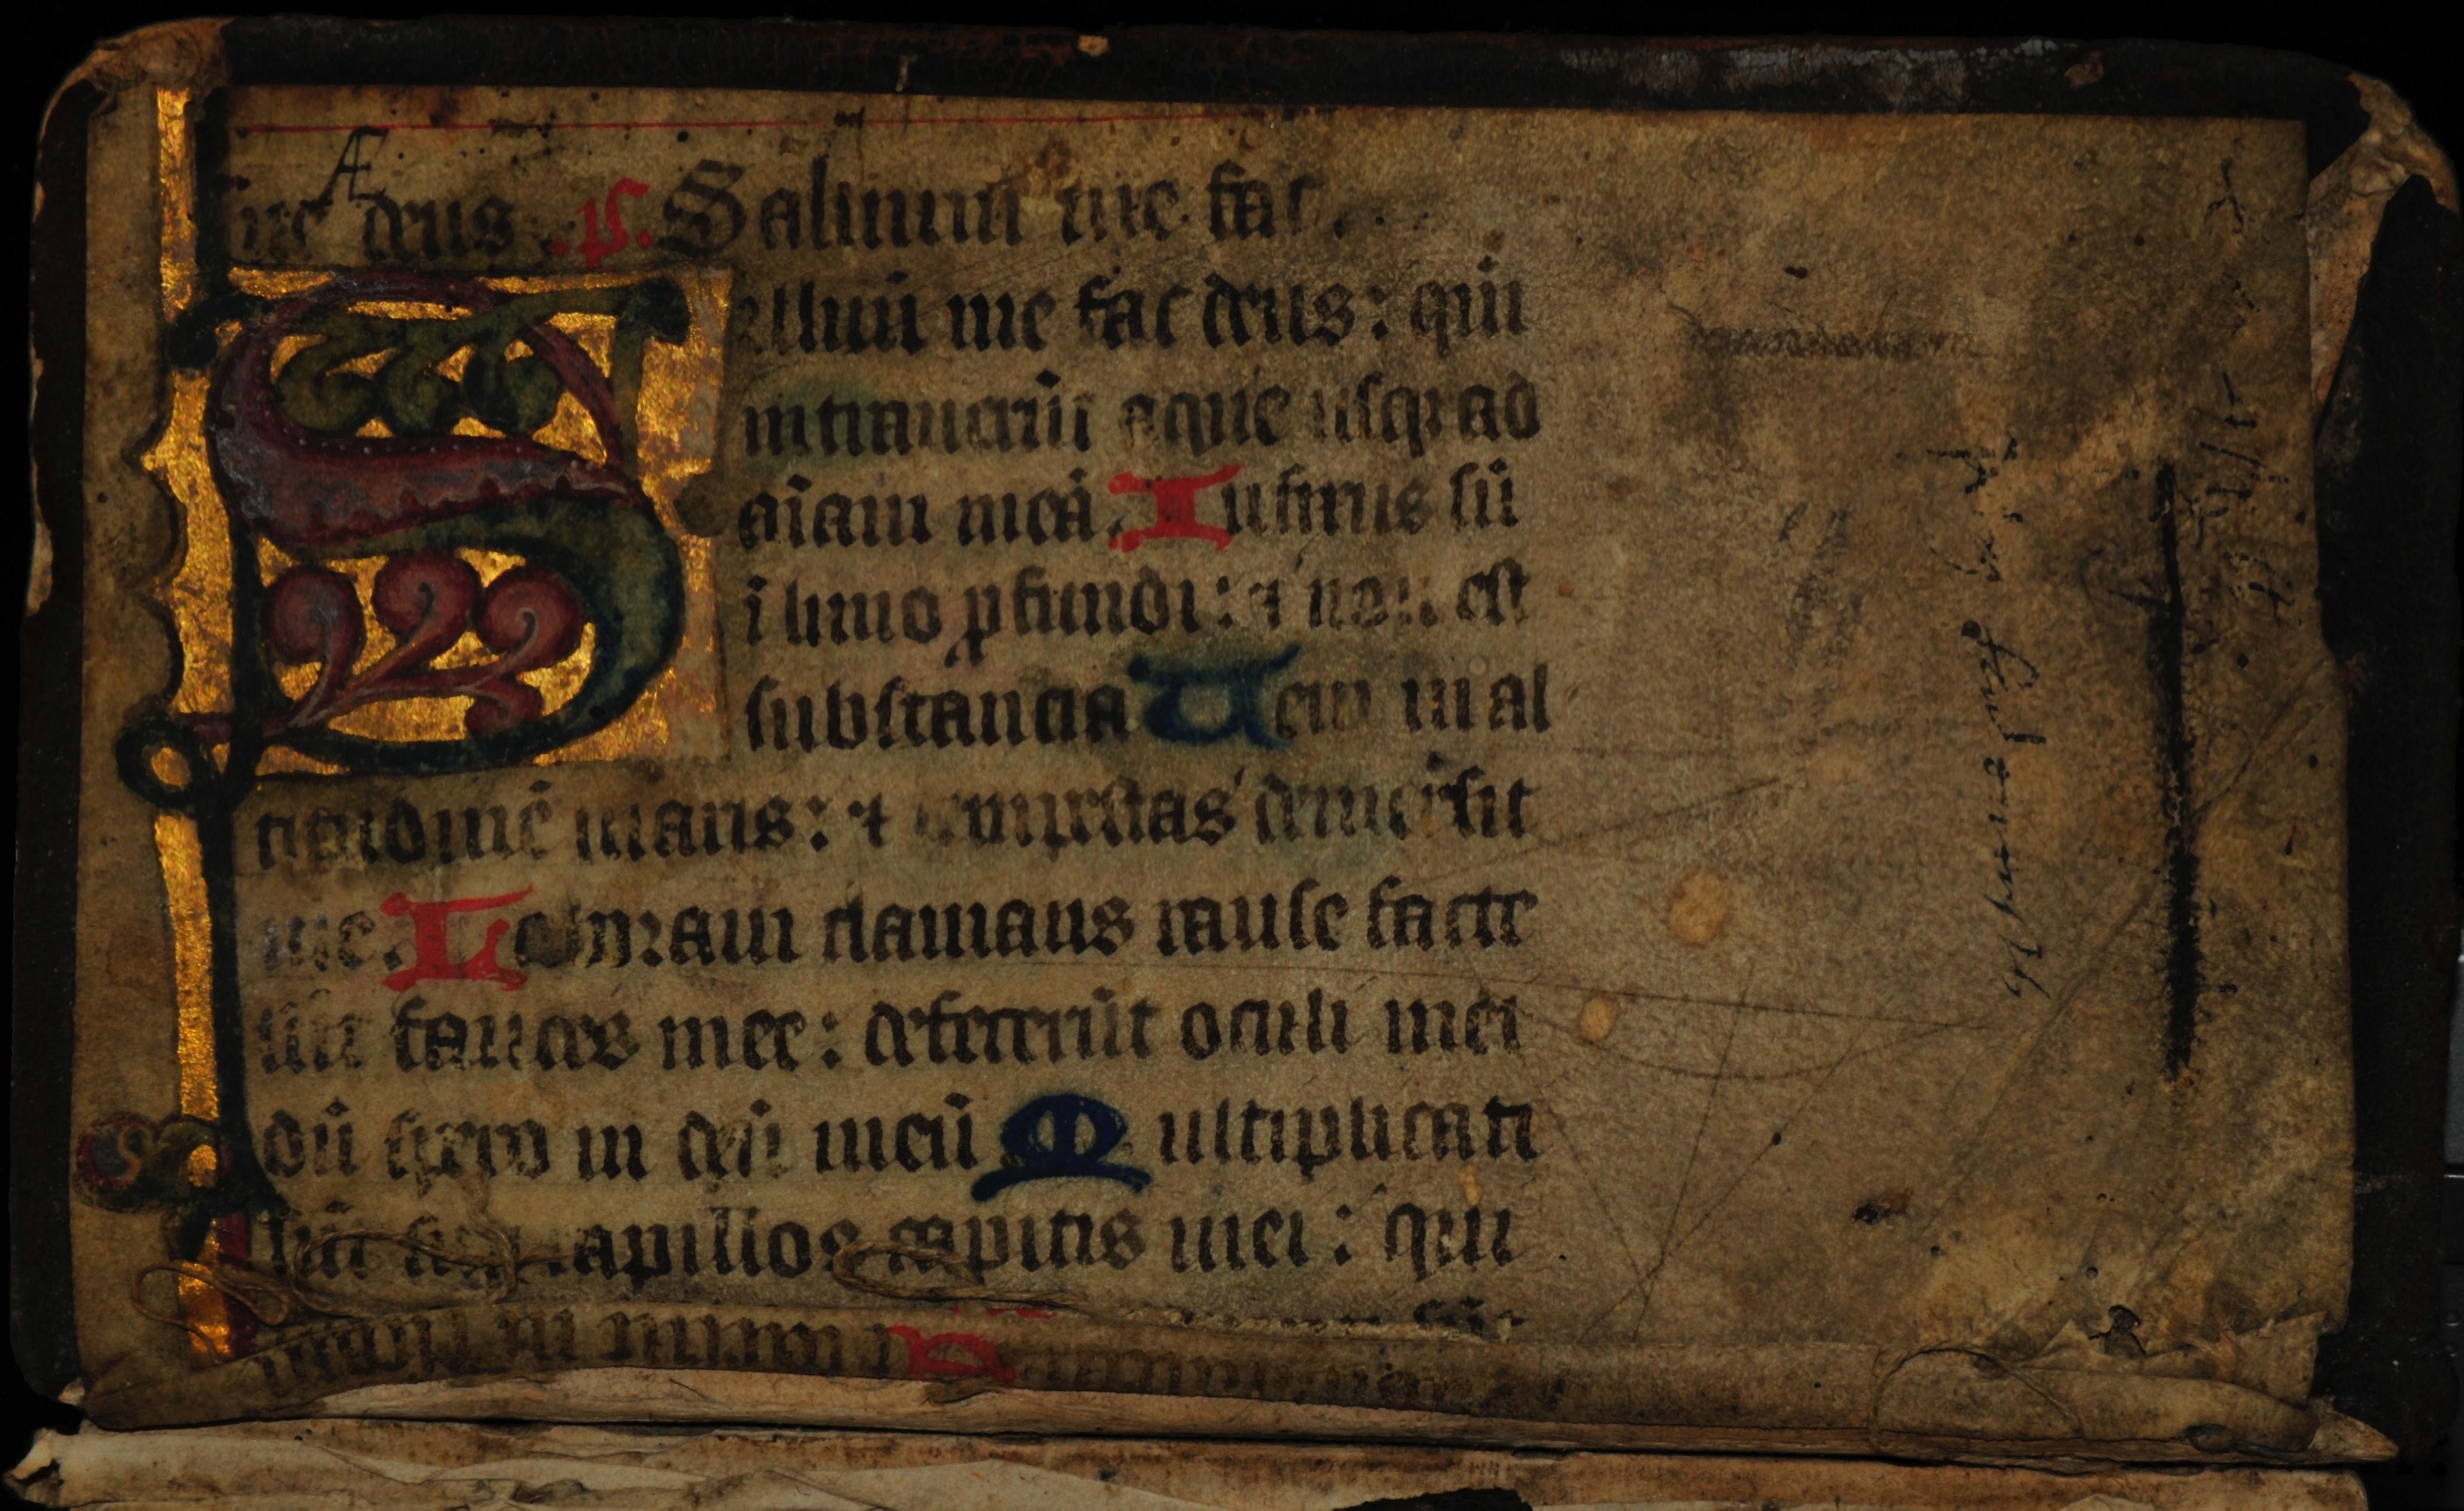 Æ
me deus. ps. Saluum me fac.
Saluū me fac deus: qm̄
intrauerūt aque usqꝫ ad
aīam meā. Infixus sū
ī limo ꝓfundi: ⁊ non est
substancia Ueni in al
titudinē maris: ⁊ tempestas demersit
me. Laboraui clamans rauce facte
sūt fauces mee: defecerūt oculi mei
dū spero in deū meū Multiplicati
sūt sup̄ capillos capitis mei: qui